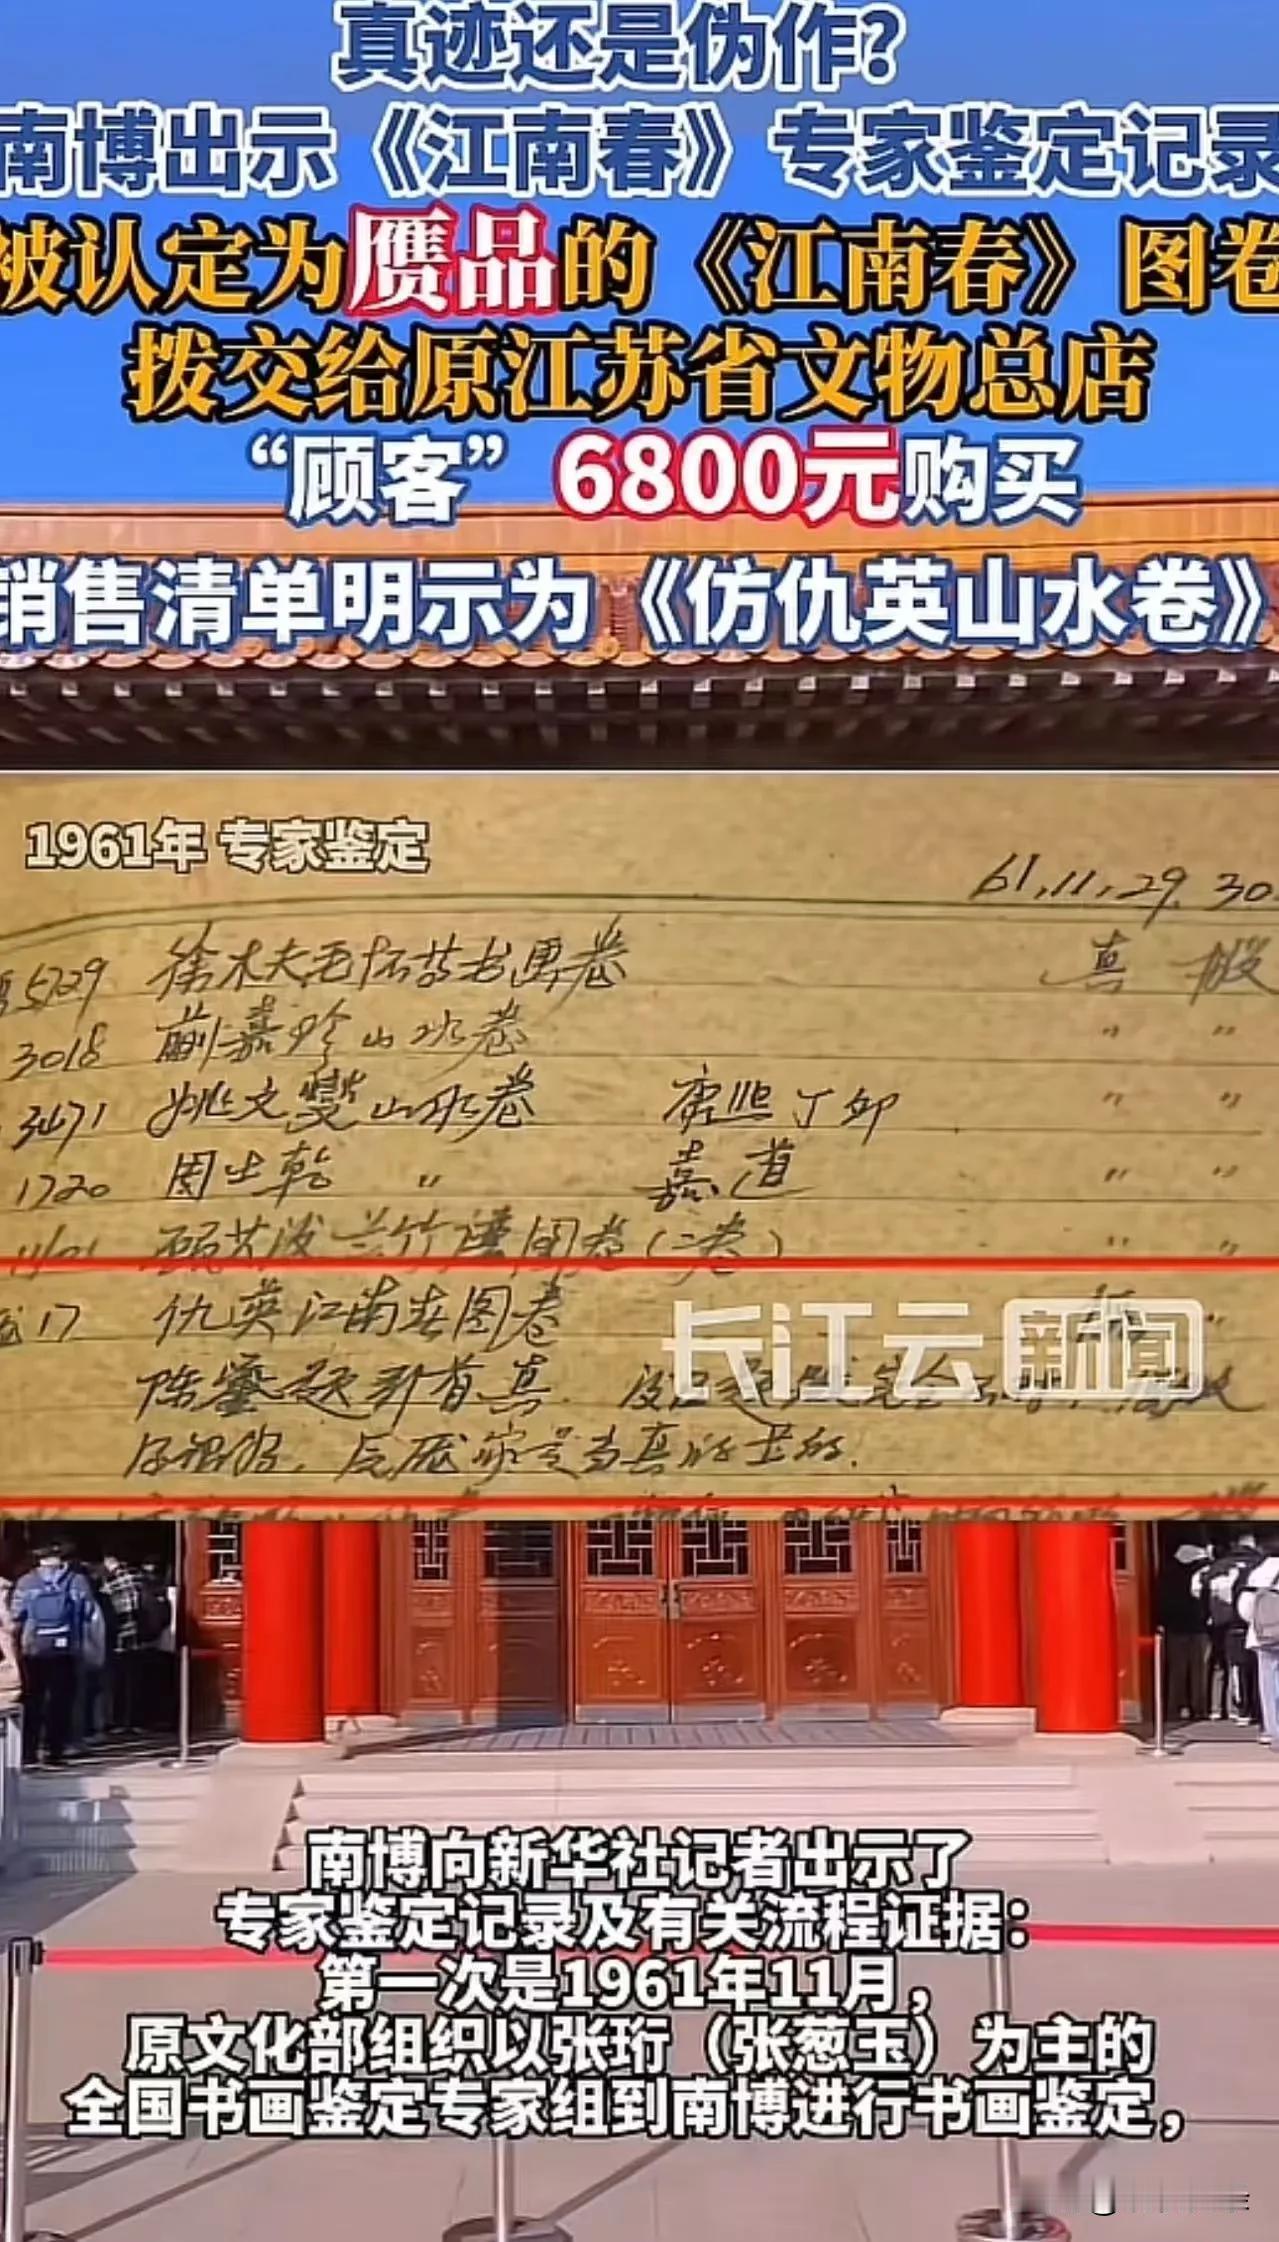 真迹还是伪作？
南博出示《江南春》专家鉴定记录
被认定为赝品的《江南春》图卷
拨交给原江苏省文物总店
“顾客”6800元购买
销售清单明示为《仿仇英山水卷》
1961年 专家鉴定
61,11,29,30
5729 徐木夫毛怀苏书画卷 真
3018 蒯嘉珍山水卷 〃 〃
3471 姚文燮山水卷 康熙丁卯 〃 〃
1720 周士乾 〃 嘉道 〃 〃
卷（二卷） 〃 〃
17 仇英江南春图卷
长江云新闻
陈鎏题引首真
南博向新华社记者出示了
专家鉴定记录及有关流程证据：
第一次是1961年11月，
原文化部组织以张珩（张葱玉）为主的
全国书画鉴定专家组到南博进行书画鉴定，